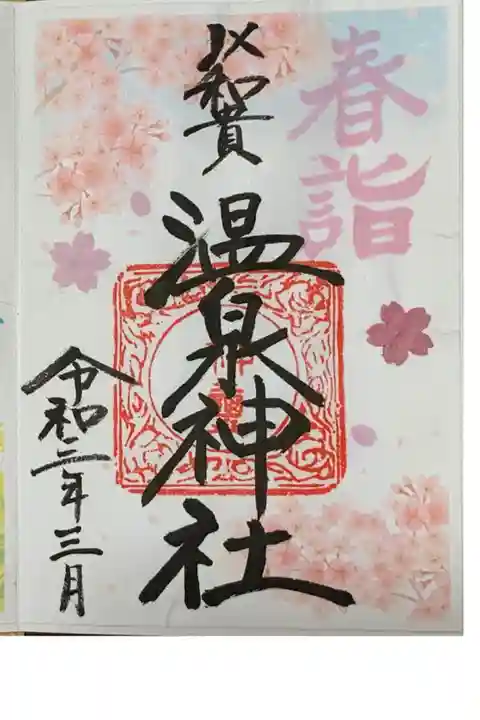 春詣
以和貴
温泉神社
令和二年三月